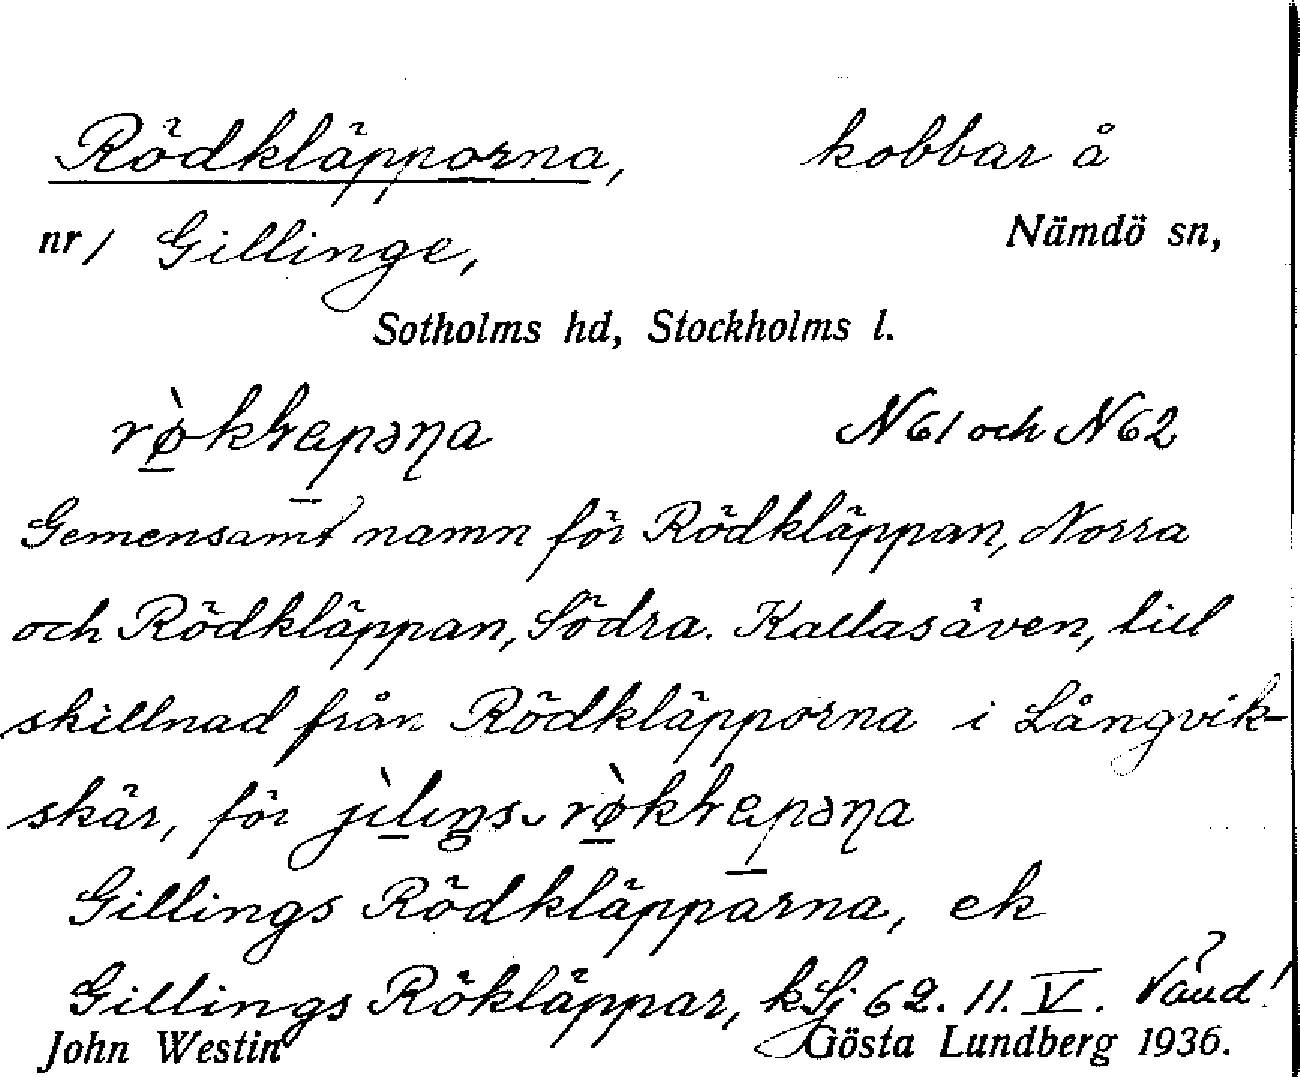 Rödkläpporna, kobbar å
nr 1 Gillinge, Nämdö sn,
Sotholms hd, Stockholms l.
N 61 och N 62
Gemensamt namn för Rödkläppan, Norra
och Rödkläppan, Södra. Kallas även, till
skillnad från Rödkläpporna i Långvik-
skär, för
Gillings Rödkläpparna, ek
Gillings Rökläppar, kSj 62. 11. V. Vänd!
John Westin Gösta Lundberg 1936.